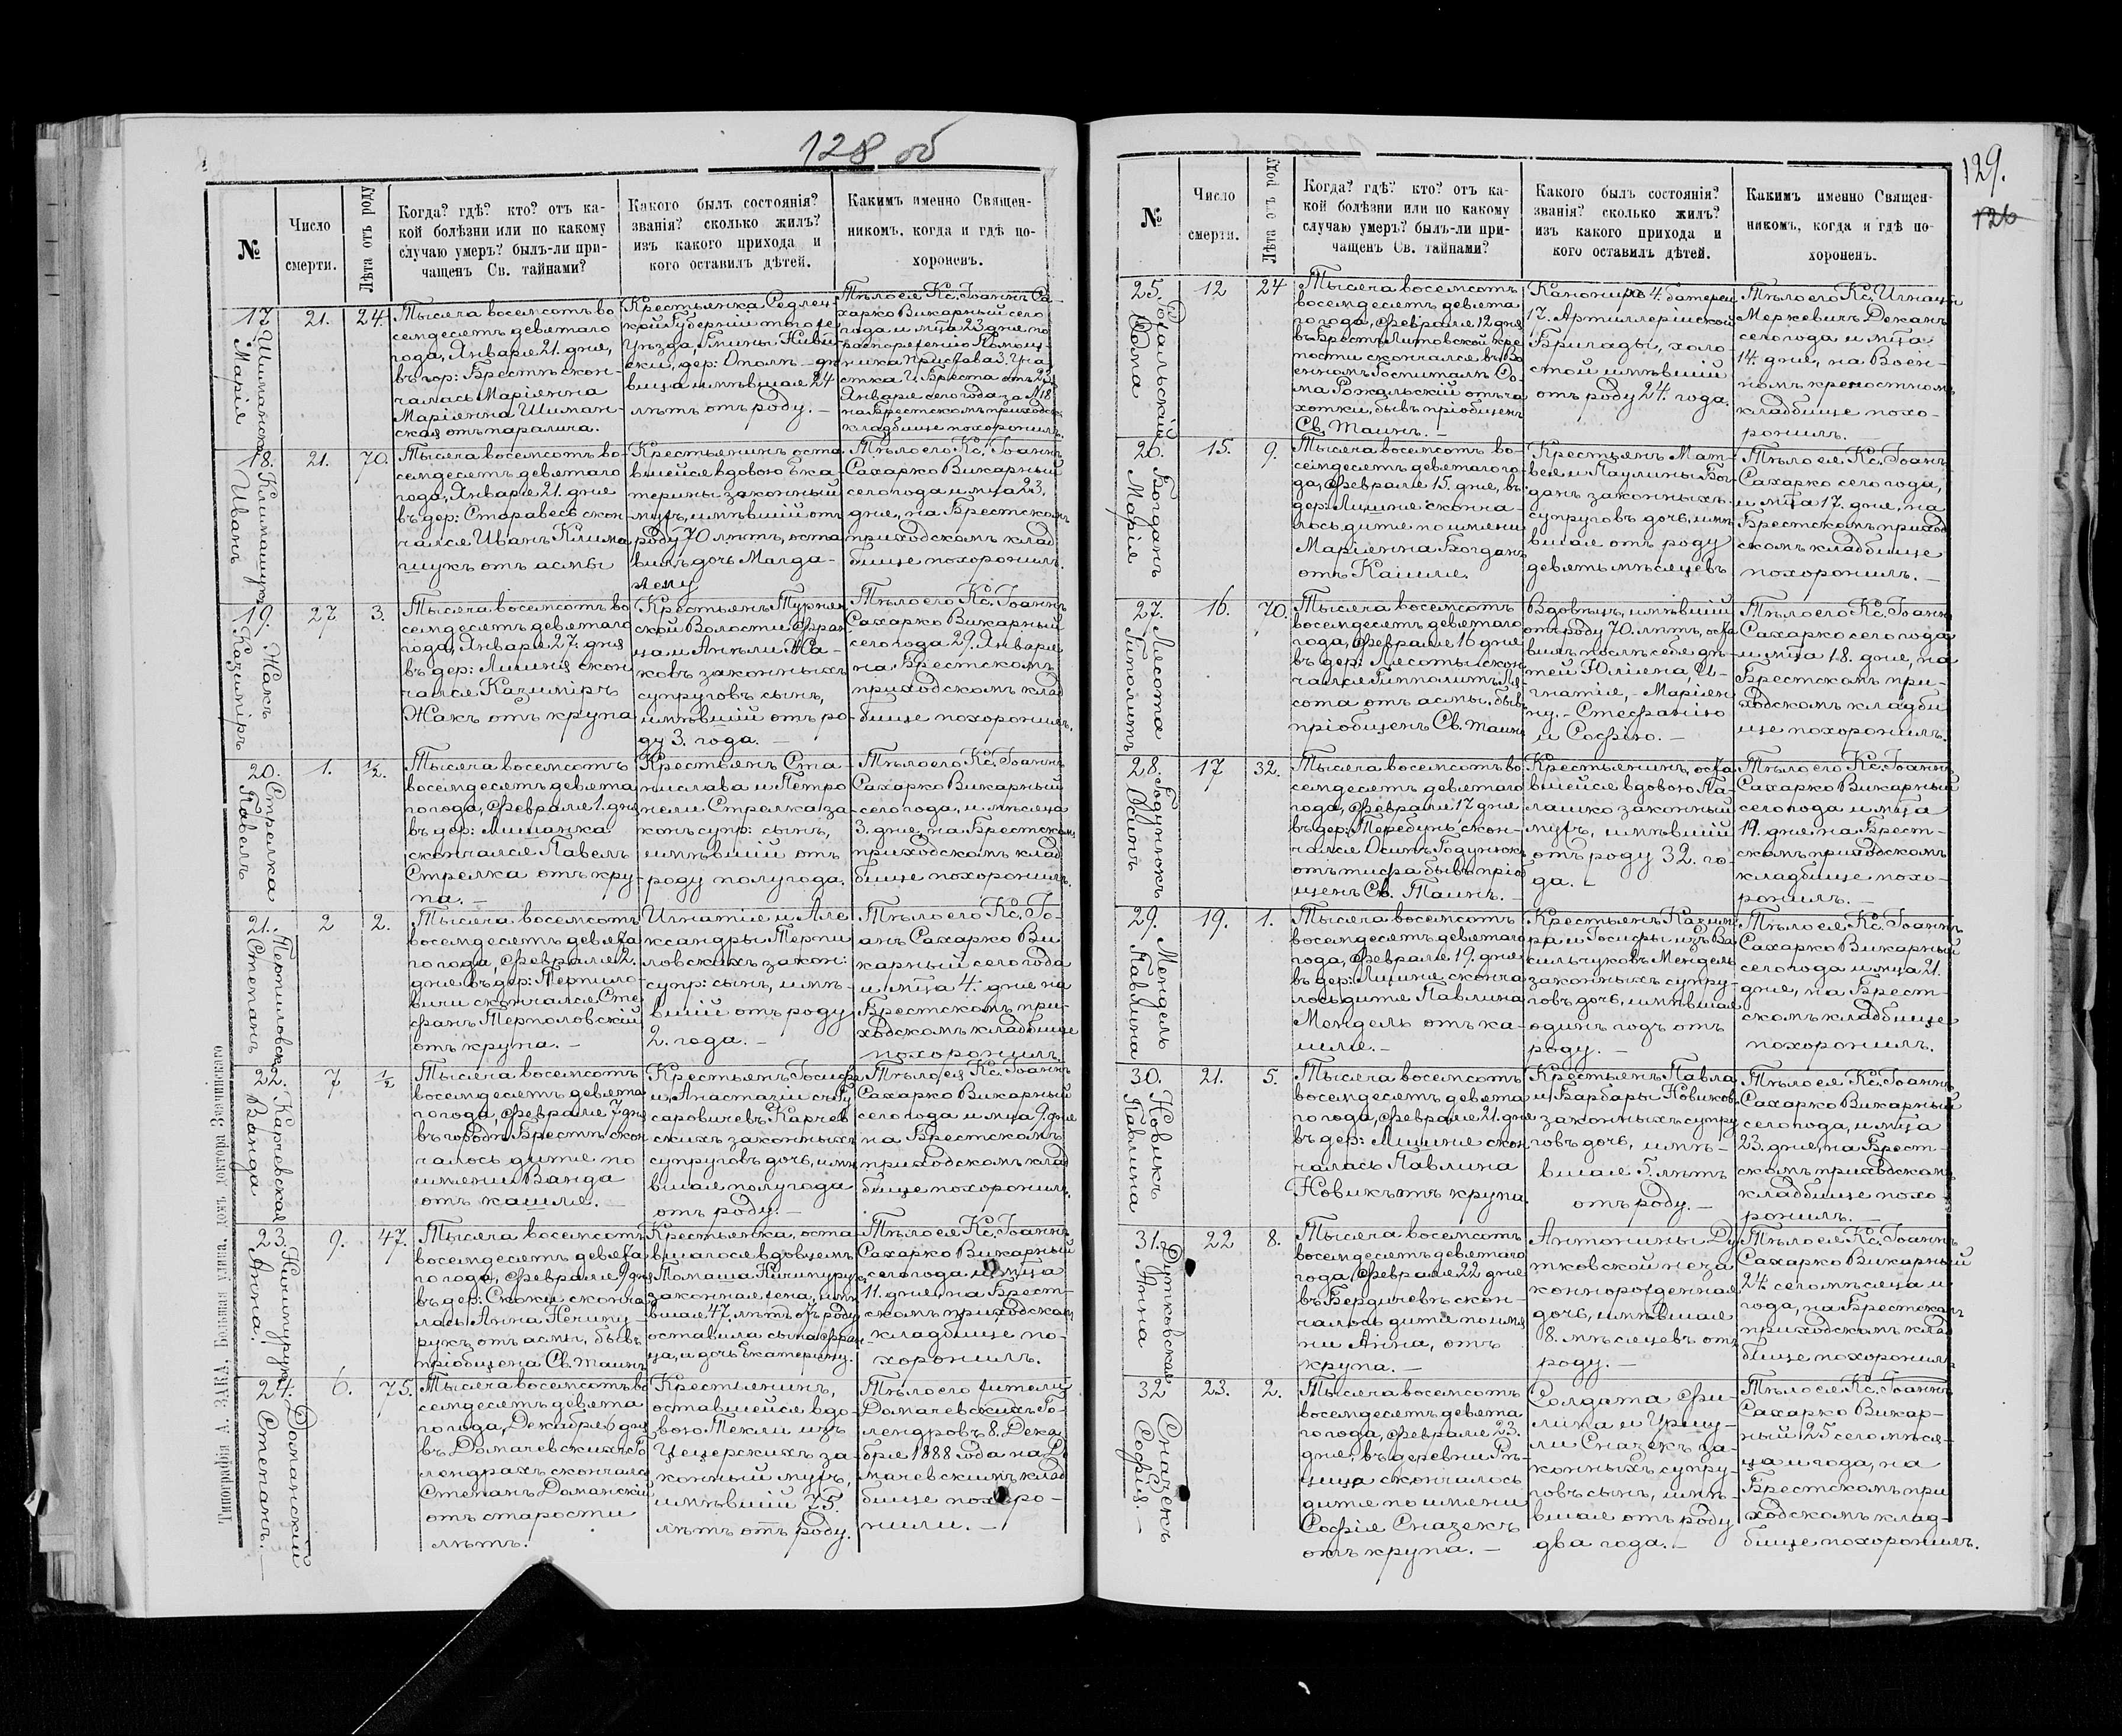 128 об
№
Число
смерти.
Лѣта отъ роду
Когда? гдѣ? кто? отъ ка-
кой болѣзни или по какому
случаю умеръ? былъ-ли при-
чащенъ Св. тайнами?
Какого былъ состоянія?
званія? сколько жилъ?
изъ какого прихода и
кого оставилъ дѣтей.
Какимъ именно Священ-
никомъ, когда и гдѣ по-
хороненъ.
17.
Шиманская
Марія
21.
24.
Тысяча восемсотъ во
семдесятъ девятаго
года, Января 21. дня,
въ гор: Брестѣ скон-
чалась Маріянна
Маріянна Шиман-
ская отъ паралича.
Крестьянка Седлец
кой Губерніи того же
Уѣзда, Гмины Ниви-
ски, дер: Ополѣ - дѣ
вица имѣвшая 24
лѣтъ отъ роду. —
Тѣло ея Кс. Іоаннъ Са-
харко Викарный сего
года и мца 23 дня, по
распоряженію Помощ-
ника Пристава 3. Уча
стка Г. Бреста отъ 23
Января сего года за №18
на Брестскомъ приходск:
кладбище похоронилъ.
18.
Климашукъ
Иванъ
21.
70.
Тысяча восемсотъ во-
семдесятъ девятаго
года, Января 21. дня
въ дер: Старавесь скон
чался Иванъ Клима
шукъ отъ асмы
Крестьянинъ оста
вшейся вдовою Ека-
терины законный
мужъ, имѣвшій отъ
роду 70 лѣтъ, оста
вилъ дочь Магда-
лену
Тѣло его Кс. Іоаннъ
Сахарко Викарный
сего года и мца 23.
дня, на Брестскомъ
приходскомъ клад
бище похоронилъ.
19.
Жакъ
Казиміръ
27
3.
Тысяча восемсотъ во
семдесятъ девятаго
года, Января 27. дня
въ дер: Лишня скон
чался Казиміръ
Жакъ отъ крупа
Крестьянъ Турнян
ской Волости Фран
ца и Анели Жа-
ковъ законныхъ
супруговъ сынъ,
имѣвшій отъ ро-
ду 3. года. —
Тѣло его Кс. Іоаннъ
Сахарко Викарный
сего года 29. Января
на Брестскомъ
приходскомъ клад
бище похоронилъ.
20.
Стрелка
Павелъ
1.
½.
Тысяча восемсотъ
восемдесятъ девята
го года, Февраля 1. дня
въ дер: Мишанка
скончался Павелъ
Стрелка отъ кру-
па. —
Крестьянъ Ста-
нислава и Петро
нели Стрелка за-
кон: супр: сынъ,
имѣвшій отъ
роду полугода.
Тѣло его Кс. Іоаннъ
Сахарко Викарный
сего года, и мѣсяца
3. дня, на Брестскомъ
приходскомъ клад
бище похоронилъ.
21.
Терпиловскій
Степанъ
2
2.
Тысяча восемсотъ
восемдесятъ девята
го года, Февраля 2.
дня въ дер: Терпило-
вичи скончался Сте
фанъ Терполовскій
отъ крупа. —
Игнатія и Але
ксандры Терпи
ловскихъ закон:
супр: сынъ, имѣ-
вшій отъ роду
2. года. —
Тѣло его Кс. Іо-
анъ Сахарко Ви
карный сего года
и мца 4. дня на
Брестскомъ при-
ходскомъ кладбище
похоронилъ.
22.
Карчевская
Ванда
7
½
Тысяча восемсотъ
восемдесятъ девята
го года, Февраля 7 дня
въ городѣ Брестѣ скон
чалось дитя по
имени Ванда
отъ кашля. —
Крестьянъ Іосифа
и Анастазіи съ Гу
саровичевъ Карчев
скихъ законныхъ
супруговъ дочь, имѣ
вшая полугода
отъ роду. —
Тѣло ея Кс. Іоаннъ
Сахарко Викарный
сего года и мца 9. дня
на Брестскомъ
приходскомъ клад
бище похоронилъ.
23.
Ничипурукъ
Анна.
9.
47.
Тысяча восемсотъ
восемдесятъ девята
го года, Февраля 9 дня
въ дер: Скоки сконча
лась Анна Ничипу-
рукъ отъ асмы, бывъ
пріобщена Св. Таинъ
Крестьянка, оста
вшагося вдовцемъ
Томаша Ничипурукъ
законная жена, имѣ
вшая 47. лѣтъ отъ роду
оставила сына Фран
ца, и дочь Екатерину.
Тѣло ея Кс. Іоаннъ
Сахарко Викарный
сего года и мца
11. дня, на Брест-
скомъ приходскомъ
кладбище по-
хоронилъ.
24.
Доманскій
Степанъ. —
6.
75.
Тысяча восемсотъ во
семдесятъ девята
го года, Декабря 6 дня
въ Домачевскихъ Го
лендрахъ скончался
Степанъ Доманскій
отъ старости
лѣтъ.
Крестьянинъ,
оставшейся вдо-
вою Текли изъ
Цецерскихъ за-
конный мужъ,
имѣвшій 75.
лѣтъ отъ роду.
Тѣло его жители
Домачевскихъ Го-
лендровъ 8. Дека
бря 1888 года на До
мачевскимъ клад
бище похоро-
нили. —
Типографія А. ЗАКА, Большая улица, домъ доктора
129.
126
№
Число
смерти.
Лѣта отъ роду
Когда? гдѣ? кто? отъ ка-
кой болѣзни или по какому
случаю умеръ? былъ-ли при-
чащенъ Св. тайнами?
Какого былъ состоянія?
званія? сколько жилъ?
изъ какого прихода и
кого оставилъ дѣтей.
Какимъ именно Священ-
никомъ, когда и гдѣ по-
хороненъ.
25.
Рожальскій
Фома
12
24
Тысяча восемсотъ
восемдесятъ девята
го года, Февраля 12 дня
въ Брестъ Литовской крѣ
пости скончался въ Во
енномъ Госпиталѣ Фо-
ма Рожальскій отъ ча
хотки, бывъ пріобщенъ
Св. Таинъ. —
Канониръ 4. батареи
17. Артиллерійской
Бригады, холо
стой имѣвшій
отъ роду 24. года.
Тѣло его Кс. Игнацы
Меркевичъ Деканъ
сего года и мца
14. дня, на Воен-
номъ крепостномъ
кладбище похо-
ронилъ.
26.
Богданъ
Марія
15.
9.
Тысяча восемсотъ во-
семдесятъ девятаго го
да, Февраля 15. дня, въ
дер: Лишня сконча-
лось дитя по имени
Маріянна Богданъ
отъ Кашля.
Крестьянъ Мат-
вея и Паулины Бог-
данъ законныхъ
супруговъ дочь, имѣ
вшая отъ роду
девять мѣсяцевъ
Тѣло ея Кс. Іоаннъ
Сахарко сего года,
и мца 17. дня, на
Брестскомъ приход
скомъ кладбище
похоронилъ. —
27.
Лесота
Гиполитъ
16.
70.
Тысяча восемсотъ
восемдесятъ девятаго
года, Февраля 16 дня
въ дер: Лесоты скон
чался Гипполитъ Ле
сота отъ асмы, бывъ
пріобщенъ Св. Таинъ
Вдовецъ, имѣвшій
отъ роду 70. лѣтъ, оста
вилъ послѣ себя дѣ-
тей Юліена, И-
гнатія, - Маріян
ну. - Стефанію
и Софію. —
Тѣло его Кс. Іоаннъ
Сахарко сего года
и мца 18. дня, на
Брестскомъ при-
ходскомъ кладби
ще похоронилъ.
28.
Годунюкъ
Осипъ
17
32.
Тысяча восемсотъ во
семдесятъ девятаго
года, Февраля 17 дня
въ дер: Теребунь, скон-
чался Осипъ Годунюкъ
отъ тифа бывъ пріо
щенъ Св. Таинъ. —
Крестьянинъ, оста
вшейся вдовою Па-
лашко законный
мужъ, имѣвшій
отъ роду 32. го-
да. —
Тѣло его Кс. Іоаннъ
Сахарко Викарный
сего года и мца
19. дня на Брест-
скомъ приходскомъ
кладбище похо-
ронилъ. —
29.
Мендель
Павлина
19.
1.
Тысяча восемсотъ
восемдесятъ девятаго
года, Февраля 19. дня
въ дер: Лишня, сконча
лось дитя Павлина
Мендель отъ ка-
шля. —
Крестьянъ Казими
ра и Іосифы изъ Ва
сильчуковъ Мендель
законныхъ супру-
говъ дочь, имѣвшая
одинъ годъ отъ
роду. —
Тѣло ея Кс. Іоаннъ
Сахарко Викарный
сего года и мца 21.
дня, на Брест-
скомъ кладбище
похоронилъ.
30.
Новикъ
Павлина
21.
5.
Тысяча восемсотъ
восемдесятъ девята
го года, Февраля 21. дня
въ дер: Лишня скон
чалась Павлина
Новикъ отъ крупа.
Крестьянъ Павла
и Барбары Новиковъ
законныхъ супру
говъ дочь, имѣ-
вшая 5. лѣтъ
отъ роду. —
Тѣло ея Кс. Іоаннъ
Сахарко Викарный
сего года, и мца
23. дня, на Брест-
скомъ приходскомъ
кладбище похо-
ронилъ. —
31.
Дутковская
Анна
22
8.
Тысяча восемсотъ
восемдесятъ девятаго
года, Февраля 22 дня
въ Бердичевѣ скон-
чалось дитя по име
ни Анна, отъ
крупа. —
Антонины Ду
тковской неза
коннорожденная
дочь, имѣвшая
8. мѣсяцевъ отъ
роду. —
Тѣло ея Кс. Іоаннъ
Сахарко Викарный
24 сего мѣсяца и
года, на Брестскомъ
приходскомъ клад
бище похоронилъ
32
Сназекъ
Софія. —
23.
2.
Тысяча восемсотъ
восемдесятъ девята
го года, Февраля 23.
дня, въ деревни Рѣ
чица скончалось
дитя по имени
Софія Сназекъ
отъ крупа. —
Солдата Фи-
липа и Уршу-
ли Сназекъ за-
конныхъ супру-
говъ сынъ, имѣ-
вшая отъ роду
два года. —
Тѣло ея Кс. Іоаннъ
Сахарко Викар-
ный 25 сего мѣся-
ца и года, на
Брестскомъ при
ходскомъ клад-
бище похоронилъ.